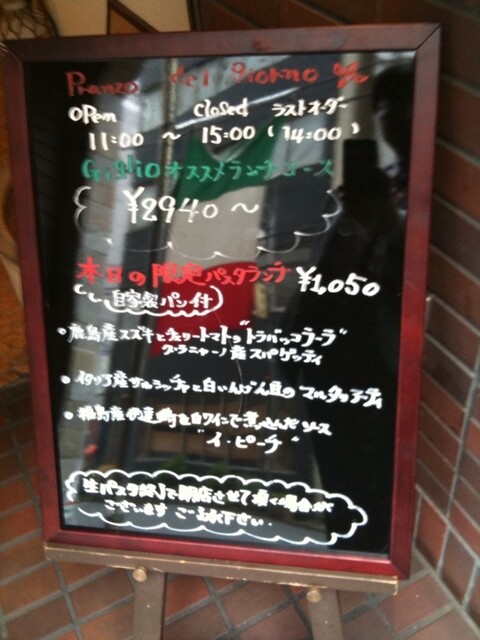 Pranzo del Giorno
OPen closed ラストオーダー
11:00 〜 15:00 (14:00)
Giglio オススメランチコース
¥2940〜
本日の限定パスタランチ ¥1,050
自家製パン付
・鹿島産スズキとチェリートマト "トラバッコラーラ"
グラニャーノ産スパゲッティ
・イタリア産サルシッチャと白いんげん豆の マルタリアーティ
・福島産伊達鶏を白ワインで煮込んだソース
"イ・ピーチ"
生パスタ終了で閉店させて頂く場合が
ございます ご了承下さい。